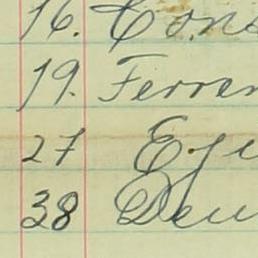 16. Cons
19. Ferren
27
38 Deu